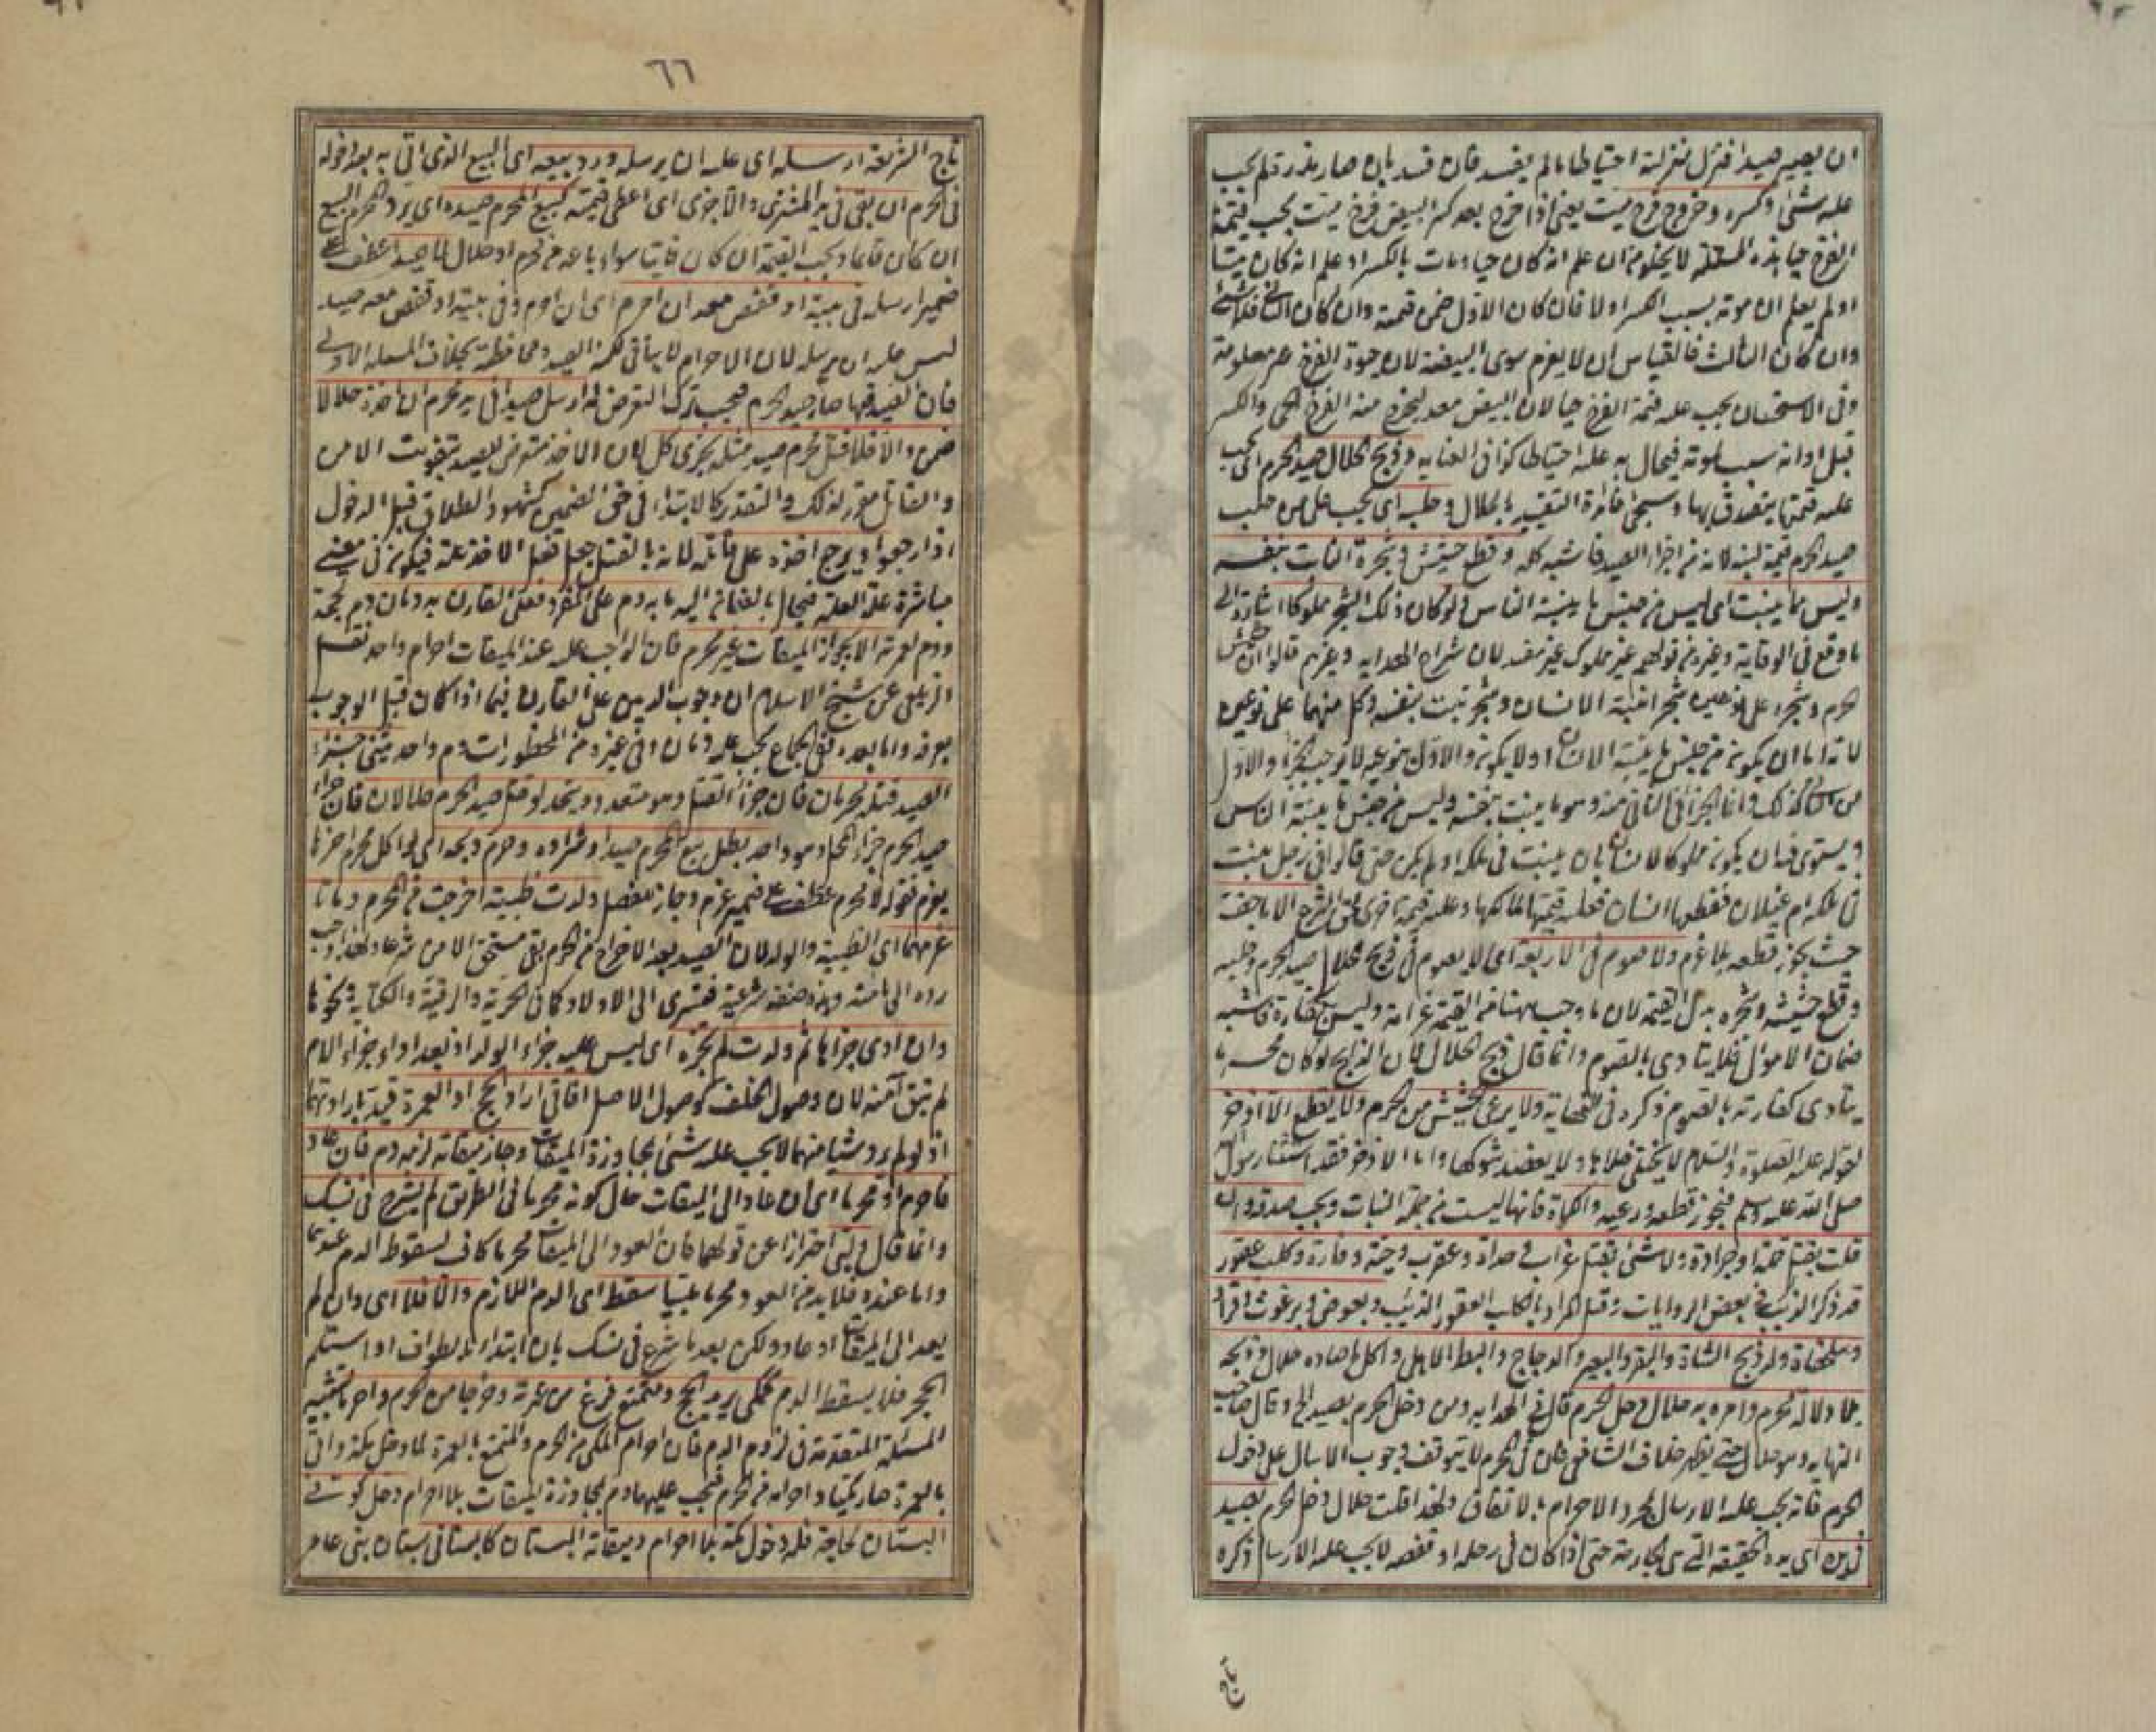 ان يصير صيدا فنزل منزلته احتياطا ما لم يفسد فان فسد بان صار مذرة لم يجب
عليه شئ وكسره وخروج فرخ ميت يعني اذا خرج بعد كسر البيض فرخ ميت يجب قيمة
الفرخ حيا هذه المسئلة لا يخلو من ان علم انه كان حيا ومات بالكسر او علم انه كان ميتا
او لم يعلم ان موته بسبب الكسر او لا فان كان الاول ضمن قيمته وان كان الثاني فلا شئ
وان كان الثالث فالقياس ان لا يغرم سوى البيضة لان حيوة الفرخ غير معلومة
وفي الاستحسان يجب عليه قيمة الفرخ حيا لان البيض معد ليخرج منه الفرخ الحي والكسر
قبل اوانه سبب لموته فيحال به عليه احتياطا كذا في العناية وذبح الحلال صيد الحرم اي يجب
عليه قيمتها يتصدق بها وسيجئ فائدة التقييد بالحلال وحلبه اي يجب على من حلب
صيد الحرم قيمة لبنه لانه من اجزاء الصيد فاشبه كله وقطع حشيشه وشجره النابت بنفسه
وليس مما ينبت اي ليس من جنس ما ينبته الناس ولو كان ذلك الشجر مملوكا اشارة الى
ما وقع في الوقاية وغيره من قولهم غير مملوك غير مفيد لان شراح الهداية وغيرهم قالوا ان حشيش
الحرم وشجره على نوعين شجر انبته الانسان وشجر نبت بنفسه وكل منهما على نوعين
لانه اما ان يكون من جنس ما ينبته الانسان او لا يكون والاول بنوعيه لا يوجب الجزاء والاول
من الثاني كذلك وانما الجزاء في الثاني منه وهو ما ينبت بنفسه وليس من جنس ما ينبته الناس
ويستوي فيه ان يكون مملوكا لانسان بان ينبت في ملكه او لم يكن حتى قالوا في رجل نبتت
في ملكه ام غيلان فقطعها انسان فعليه قيمتها لمالكها وعليه قيمة اخرى لحق الشرع الا ما جفت
حيث يجوز قطعه بلا غرم ولا صوم في الاربعة اي لا يصوم في ذبح الحلال صيد الحرم وحلبه
وقطع حشيشه وشجره بدل القيمة لان ما وجب ههنا من القيمة غرامة وليس بكفارة فاشبه
ضمان الاموال فلا يتادى بالصوم وانما قال ذبح الحلال لان الذابح لو كان محرما
يتادى كفارته بالصوم ذكره في النهاية ولا يرعى الحشيش من الحرم ولا يقطع الا الاذخر
لقوله عليه الصلوة والسلام لا يختلى خلاها ولا يعضد شوكها واما الاذخر فقد استثناه رسول الله
صلى الله عليه وسلم فيجوز قطعه ورعيه والكماة فانها ليست من جملة النبات ويجب صدقة وان
قلت بقتل قملة او جرادة ولا شئ بقتل غراب وحداة وعقرب وحية وفارة وكلب عقور
قد ذكر الذئب في بعض الروايات وقيل المراد بالكلب العقور الذئب وبعوض وبرغوث وقراد
وسلحفاة وله ذبح الشاة والبقر والبعير والدجاج والبط الاهلي واكل ما صاده حلال وذبحه
بلا دلالة محرم وامره به حلال دخل الحرم قال في الهداية ومن دخل الحرم بصيد الخ وقال صاحب
النهاية وهو حلال حتى يظهر خلاف الشافعي فان في الحرم لا يتوقف وجوب الارسال على دخول
الحرم فانه يجب عليه الارسال بمجرد الاحرام بالاتفاق ولهذا قلت حلال دخل الحرم بصيد
في يده اي يده الحقيقية التي هي الجارحة حتى اذا كان في رحله او قفصه لا يجب عليه الارسال ذكره
تاج
٦٦
تاج الشريعة ارسله اي عليه ان يرسله ورد بيعه اي البيع الذي اتى به بعد دخوله
في الحرم ان بقي في يد المشتري والا جزى اي اعطى قيمته كبيع المحرم صيده اي يرد المحرم البيع
ان كان قائما ويجب القيمة ان كان فائتا سواء باعه من محرم او حلال لا صيد اعطف على
ضمير ارسله في بيته او قفص معه ان احرم اي ان احرم وفي بيته او قفص معه صيد
ليس عليه ان يرسله لان الاحرام لا ينافي ملك الصيد ومحافظته بخلاف المسئلة الاولى
فان الصيد فيها صار صيد الحرم فيجب ترك التعرض له ارسل صيدا في يد محرم ان اخذه حلالا
ضمن والا فلا قتل محرم صيد مثله يجزئ كل لان الآخذ متعرض للصيد بتفويت الامن
والقاتل مقرر لذلك والتقرير كالابتداء في حق التضمين كشهود الطلاق قبل الدخول
اذا رجعوا ويرجع اخذه على قاتله لانه بالقتل جعل فعل الآخذ علة فيكون في معنى
مباشرة علة العلة فيحال بالضمان اليه ما به دم على المفرد فعلى القارن به دمان دم لحجته
ودم لعمرته الا بجواز الميقات غير محرم فان الواجب عليه عند الميقات احرام واحد نقل
الزيلعي عن شيخ الاسلام ان وجوب الدمين على القارن فيما اذا كان قبل الوجوب
بعرفة واما بعده ففي الجماع يجب عليه دمان وفي غيره من المحظورات دم واحد يثنى جزاء
الصيد قتله محرمان فان جزاء القتل وهو متعدد ويتحد لو قتل صيد الحرم حلالان فان جزاء
صيد الحرم جزاء المحل وهو واحد بطل بيع المحرم صيدا وشراؤه وحرم ذبحه اي لو اكل محرم اخر ما
يغرم فقوله لا محرم عطف على ضمير غرم وجاز للفصل ولدت ظبية اخرجت من الحرم وماتا
غرمهما اي الظبية والولد لان الصيد بعد الاخراج من الحرم بقي مستحق الامن شرعا ولهذا وجب
رده الى مامنه وهذه صفة شرعية فتسرى الى الاولاد كما في الحرية والرقية والكتابة ونحوها
وان ادى جزاءها ثم ولدت لم يجزه اي ليس عليه جزاء الولد اذ بعد اداء جزاء الام
لم تبق آمنة لان وصول الخلف كوصول الاصل افاقي اراد الحج او العمرة قيد بارادتهما
اذ لو لم يرد شيئا منهما لا يجب عليه شئ بمجاوزة الميقات وجاز ميقاته لزمه دم فان عاد
فاحرم او محرما اي ان عاد الى الميقات حال كونه محرما في الطريق لم يشرع في نسك
وانما قال ولبى احترازا عن قولهما فان العود الى الميقات محرما كاف لسقوط الدم عندهما
واما عنده فلا بد من العود محرما ملبيا سقط اي الدم اللازم والا فلا اي وان لم
يعد الى الميقات او عاد ولكن بعد ما شرع في نسك بان ابتدا الطواف او استلم
الحجر فلا يسقط الدم كمكي يريد الحج ومتمتع فرغ من عمرته وخرجا من الحرم واحرما تشبيه
المسئلة المتقدمة في لزوم الدم فان احرام المكي من الحرم والمتمتع بالعمرة لما دخل مكة واتى
بالعمرة صار مكيا واحرامه من الحرم فيجب عليهما دم لمجاوزة الميقات بلا احرام دخل كوفي
البستان لحاجة فله دخول مكة بلا احرام وميقاته البستان كالبستاني بستان بني عامر